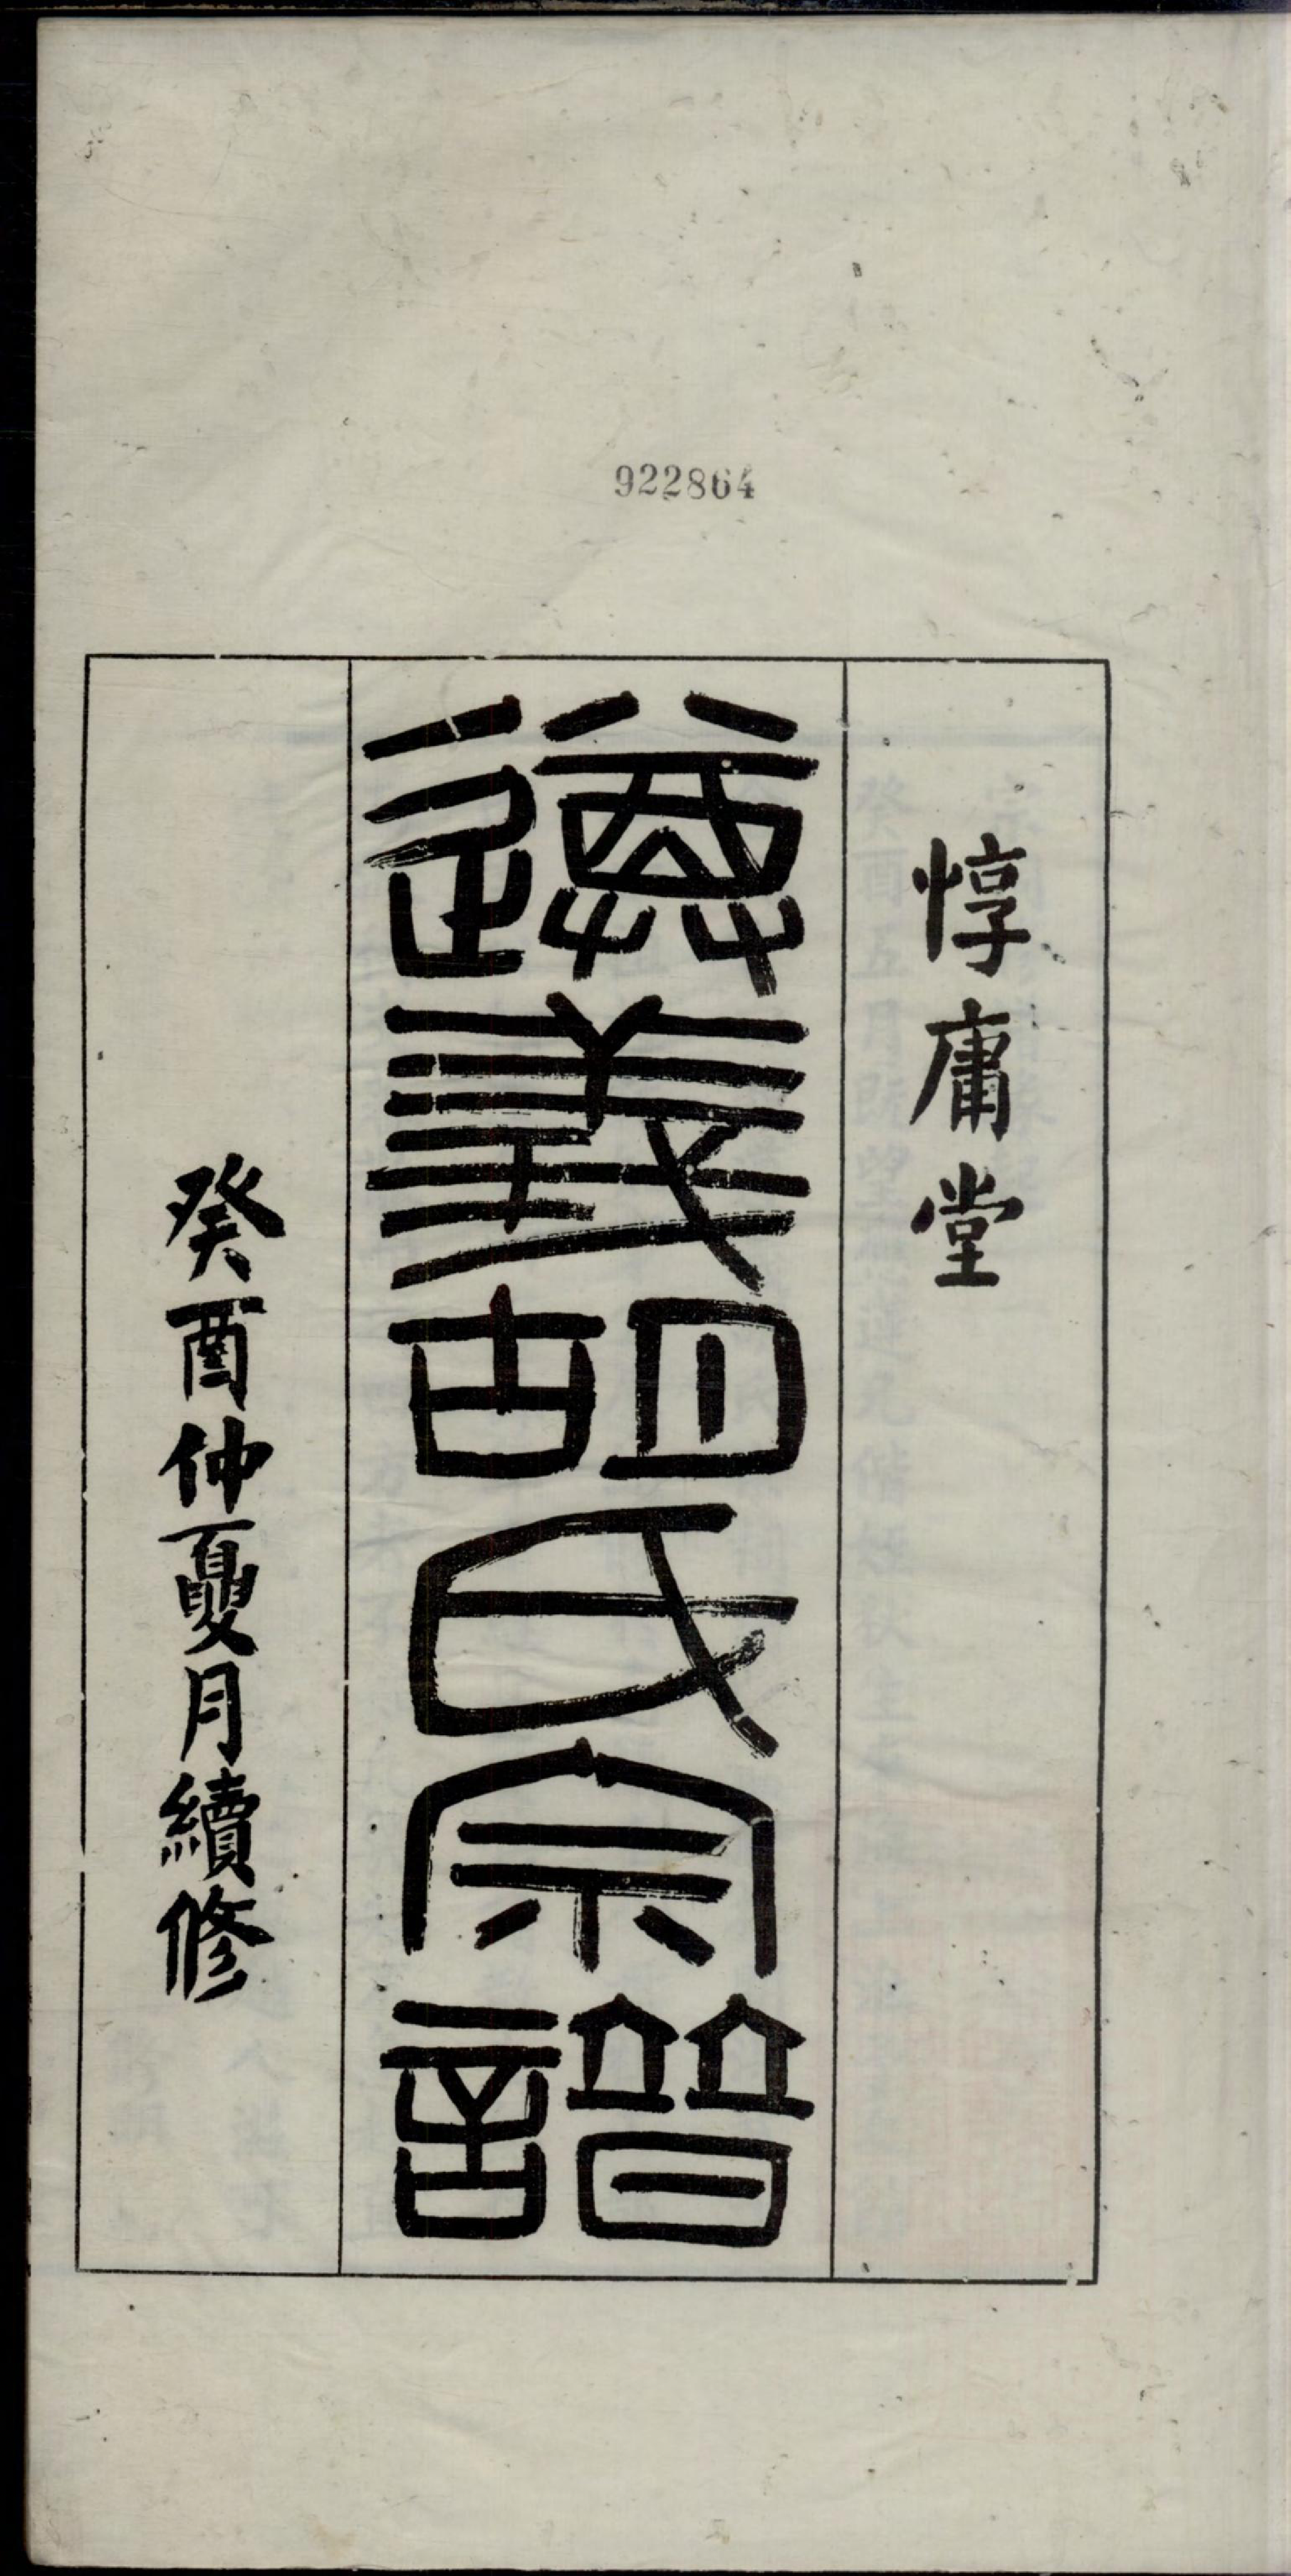 922864
惇庸堂
遵義胡氏宗譜
癸酉仲夏月續修